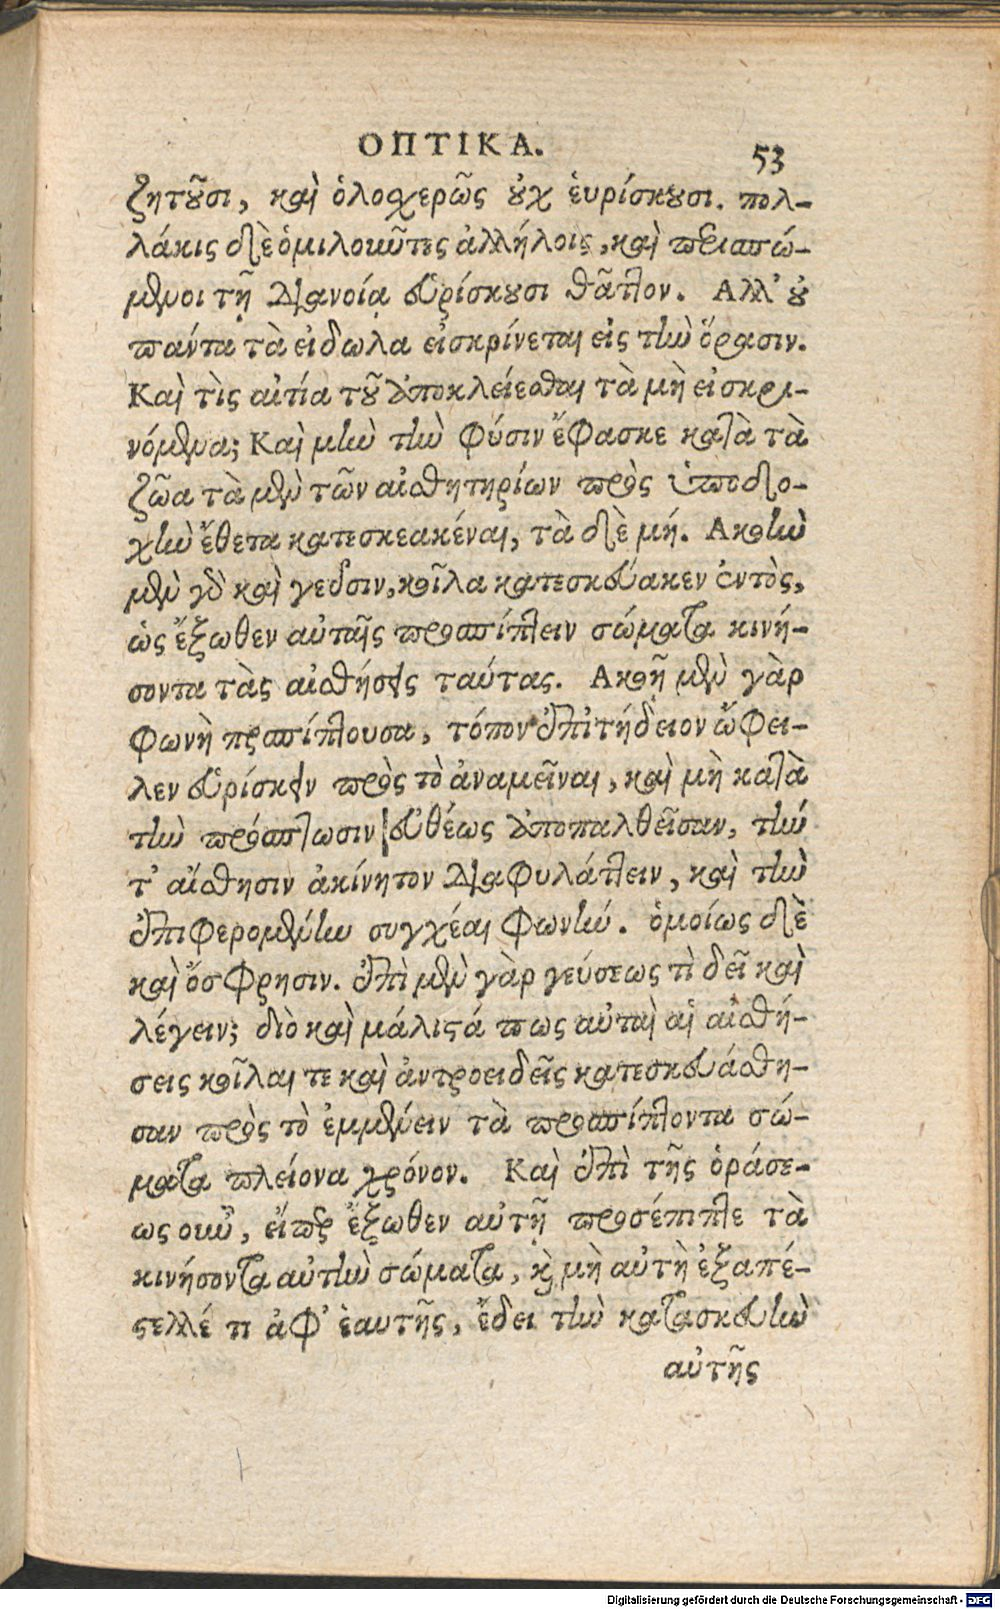 ΟΠΤΙΚΑ. 53
ζητοῦσι, καὶ ὁλοχερῶς οὐχ ἑυρίσκουσι. πολ-
λάκις δὲ ὁμιλοιῶτες ἀλλήλοις, καὶ περισπώ-
μενοι τῇ διανοίᾳ εὑρίσκουσι θᾶττον. Αλλ' οὐ
πάντα τὰ εἰδωλα εἰσκρίνεται εἰς τὴν ὅρασιν.
Καὶ τὶς αἰτία τοῦ ἀποκλείεσθαι τὰ μὴ εἰσκρι-
νόμενα; Καὶ μὴν τὴν φύσιν ἔφασκε κατὰ τὰ
ζῶα τὰ μὲν τῶν αἰσθητηρίων πρὸς ὑποδο-
χὴν ἔθετα κατεσκεακέναι, τὰ δὲ μή. Ακοὴν
μὲν γὸ καὶ γεῦσιν, κοῖλα κατεσκεύακεν ἐντὸς,
ὡς ἔξωθεν αὐταῖς προσπίπτειν σώματα κινή-
σοντα τὰς αἰσθήσεις ταύτας. Ακοῇ μὲν γὰρ
φωνὴ προσπίπτουσα, τόπον ἐπιτήδειον ὤφει-
λεν εὑρίσκειν πρὸς τὸ ἀναμεῖναι, καὶ μὴ κατὰ
τὴν πρόσπτωσιν εὐθέως ἀποπαλθεῖσαν, τήν
τ' αἴσθησιν ἀκίνητον διαφυλάττειν, καὶ τὴν
ἐπιφερομένην συγχέαι φωνήν. ὁμοίως δὲ
καὶ ὄσφρησιν. ἐπὶ μὲν γὰρ γεύσεως τὶ δεῖ καὶ
λέγειν; διὸ καὶ μάλιστά πως αὐταὶ αἱ αἰσθή-
σεις κοῖλαι τε καὶ ἀντροειδεῖς κατεσκευάσθη-
σαν πρὸς τὸ ἐμμένειν τὰ προσπίπτοντα σώ-
ματα πλείονα χρόνον. Καὶ ἐπὶ τῆς ὁράσε-
ως οὖν, εἴπερ ἔξωθεν αὐτῇ προσέπιπτε τὰ
κινήσοντα αὐτὴν σώματα, καὶ μὴ αὐτὴ ἐξαπέ-
στελλέ τι ἀφ' ἑαυτῆς, ἔδει τὴν κατασκευὴν
αὐτῆς
Digitalisierung gefördert durch die Deutsche Forschungsgemeinschaft - DFG